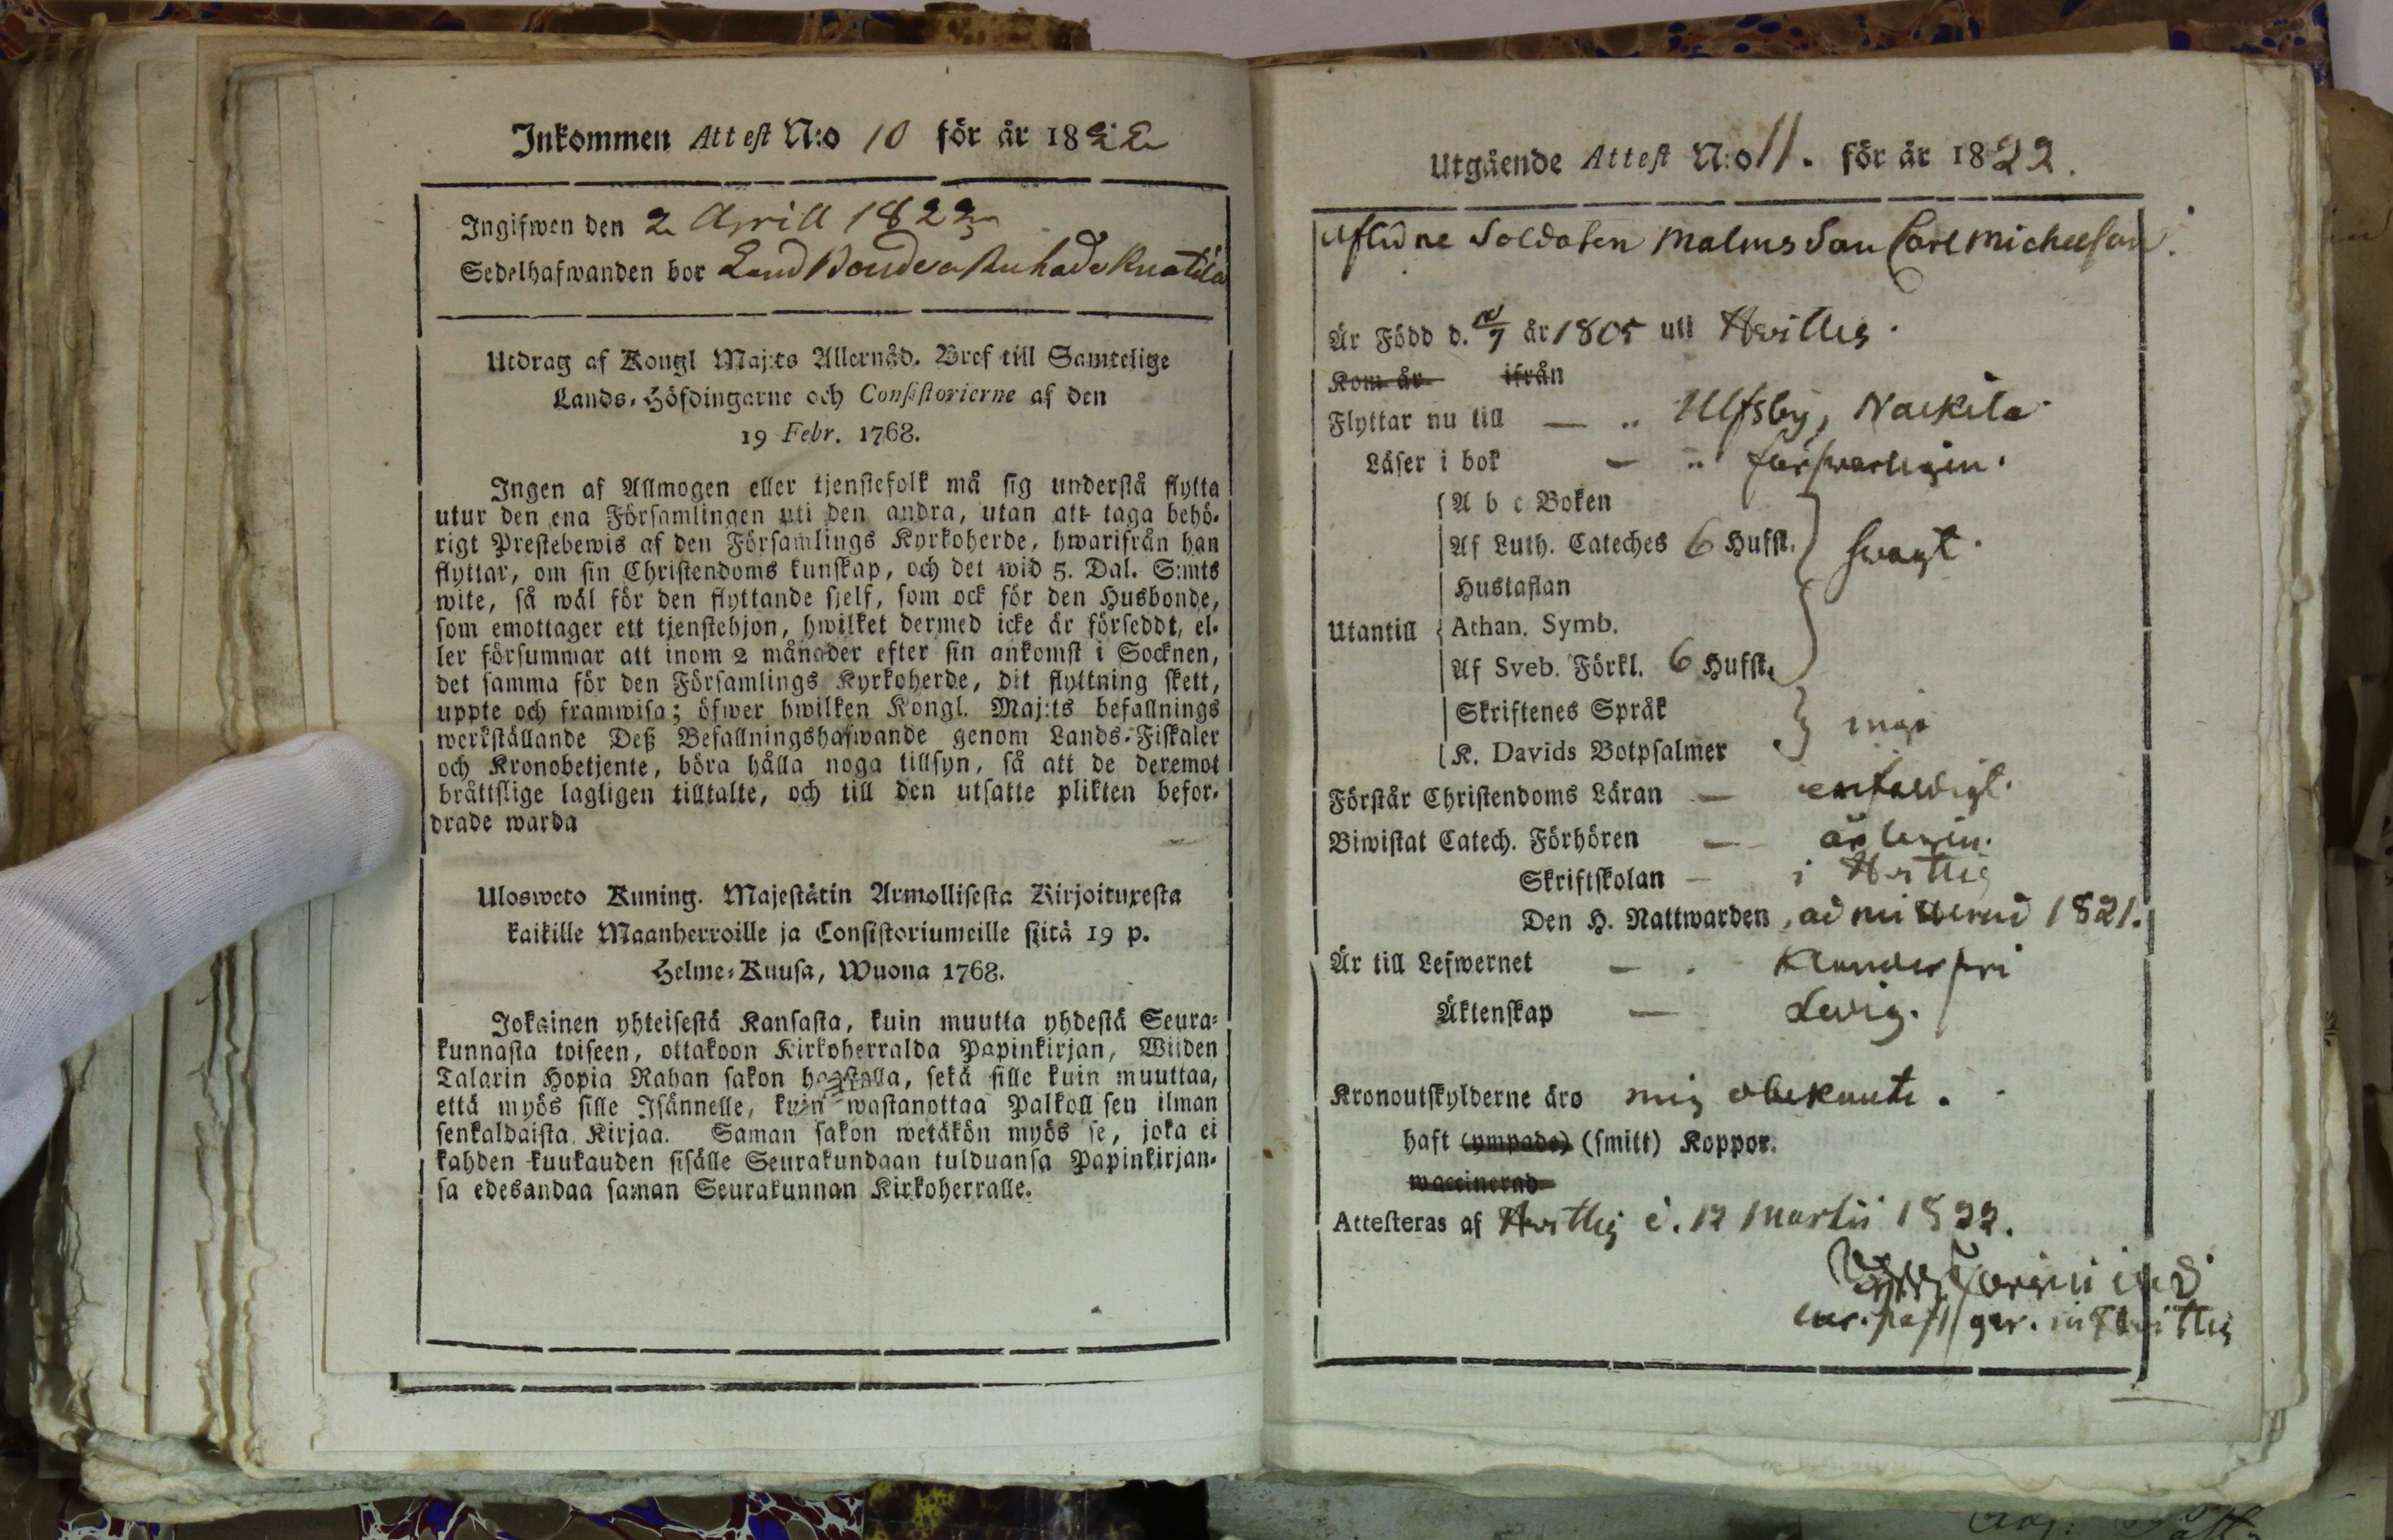 Inkommen Attest N:o 10 för år 1822
Ingifwen den 2 Aprill 1822
Sedelhafwanden bor
Utdrag af Kongl Maj:ts Allernåd. Bref till Samtelige
Lands-Höfdingarne och Consistorierne af den
19 Febr. 1768.
Ingen af Allmogen eller tjenstefolk må sig understå flytta
utur den ena Församlingen uti den andra, utan att taga behö-
rigt Prestebewis af den Församlings Kyrkoherde, hwarifrån han
flyttar, om sin Christendoms kunskap, och det wid 5. Dal. S:mts
wite, så wäl för den flyttande sjelf, som ock för den Husbonde,
som emottager ett tjenstehjon, hwilket dermed icke är förseddt, el-
ler försummar att inom 2 månader efter sin ankomst i Socknen,
det samma för den Församlings Kyrkoherde, dit flyttning skett,
uppte och framwisa; öfwer hwilken Kongl. Maj:ts befallnings
werkställande Deß Befallningshafwande genom Lands-Fiskaler
och Kronobetjente, böra hålla noga tillsyn, så att de deremot
bråttslige lagligen tilltalte, och till den utsatte plikten befor-
drade warda
Ulosweto Kuning. Majestätin Armollisesta Kirjoituxesta
kaikille Maanherroille ja Consistoriumeille siitä 19 p.
Helme-Kuusa, Wuona 1768.
Jokainen yhteisestä Kansasta, kuin muutta yhdestä Seura-
kunnasta toiseen, ottakoon Kirkoherralda Papinkirjan, Wiiden
Talarin Hopia Rahan sakon haastolla, sekä sille kuin muuttaa,
että myös sille Isännelle, kuin wastanottaa Palkoll sen ilman
senkaldaista Kirjaa. Saman sakon wetäkön myös se, joka ei
kahden kuukauden sisälle Seurakundaan tulduansa Papinkirjan-
sa edesandaa saman Seurakunnan Kirkoherralle.
Utgående Attest N:o 11. för år 1822.
Aflidne Soldaten Malms Son Carl Michelsson.
Är Född d. år 1805 uti Hvittis.
Kom år ifrån
Flyttar nu till — " Ulfsby, Nackila
Läser i bok — " försvarligen.
A b c Boken
Af Luth. Cateches 6 Hufst. svagt.
Hustaflan
Utantill Athan. Symb.
Af Sveb. Förkl. 6 Hufst.
Skriftenes Språk
K. Davids Botpsalmer
Förstår Christendoms Läran — enfaldigt.
Biwistat Catech. Förhören — årligen.
Skriftskolan — i Hvittis
Den H. Nattwarden, admitterad 1821.
Är till Lefwernet — klanderfri
Äktenskap — Ledig.
Kronoutskylderne äro mig obekante.
haft (ympade) (smitt) Koppor.
waccinerad
Attesteras af Hvittis d. 12 Martii 1822.